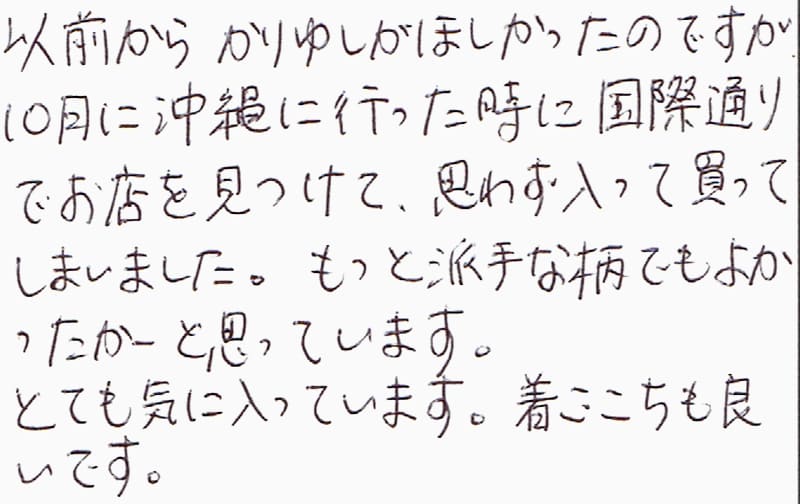 以前から かりゆしがほしかったのですが
10月に沖縄に行った時に国際通り
でお店を見つけて、思わず入って買って
しまいました。 もっと派手な柄でもよか
ったかーと思っています。
とても気に入っています。着ごこちも良
いです。